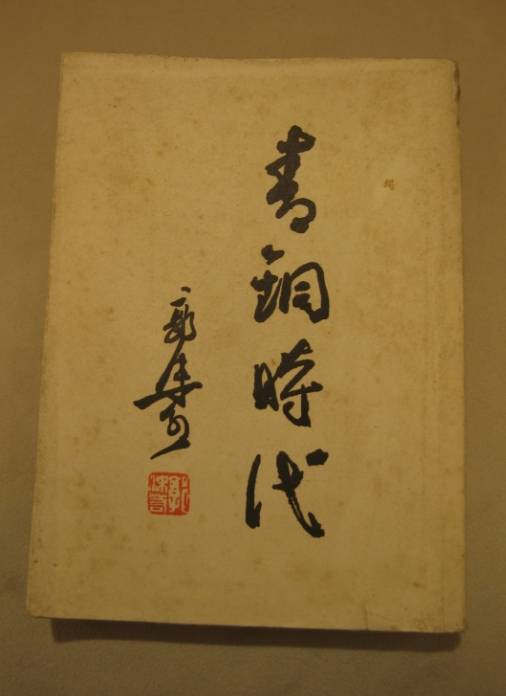 青銅時代
郭沫若
郭沫若